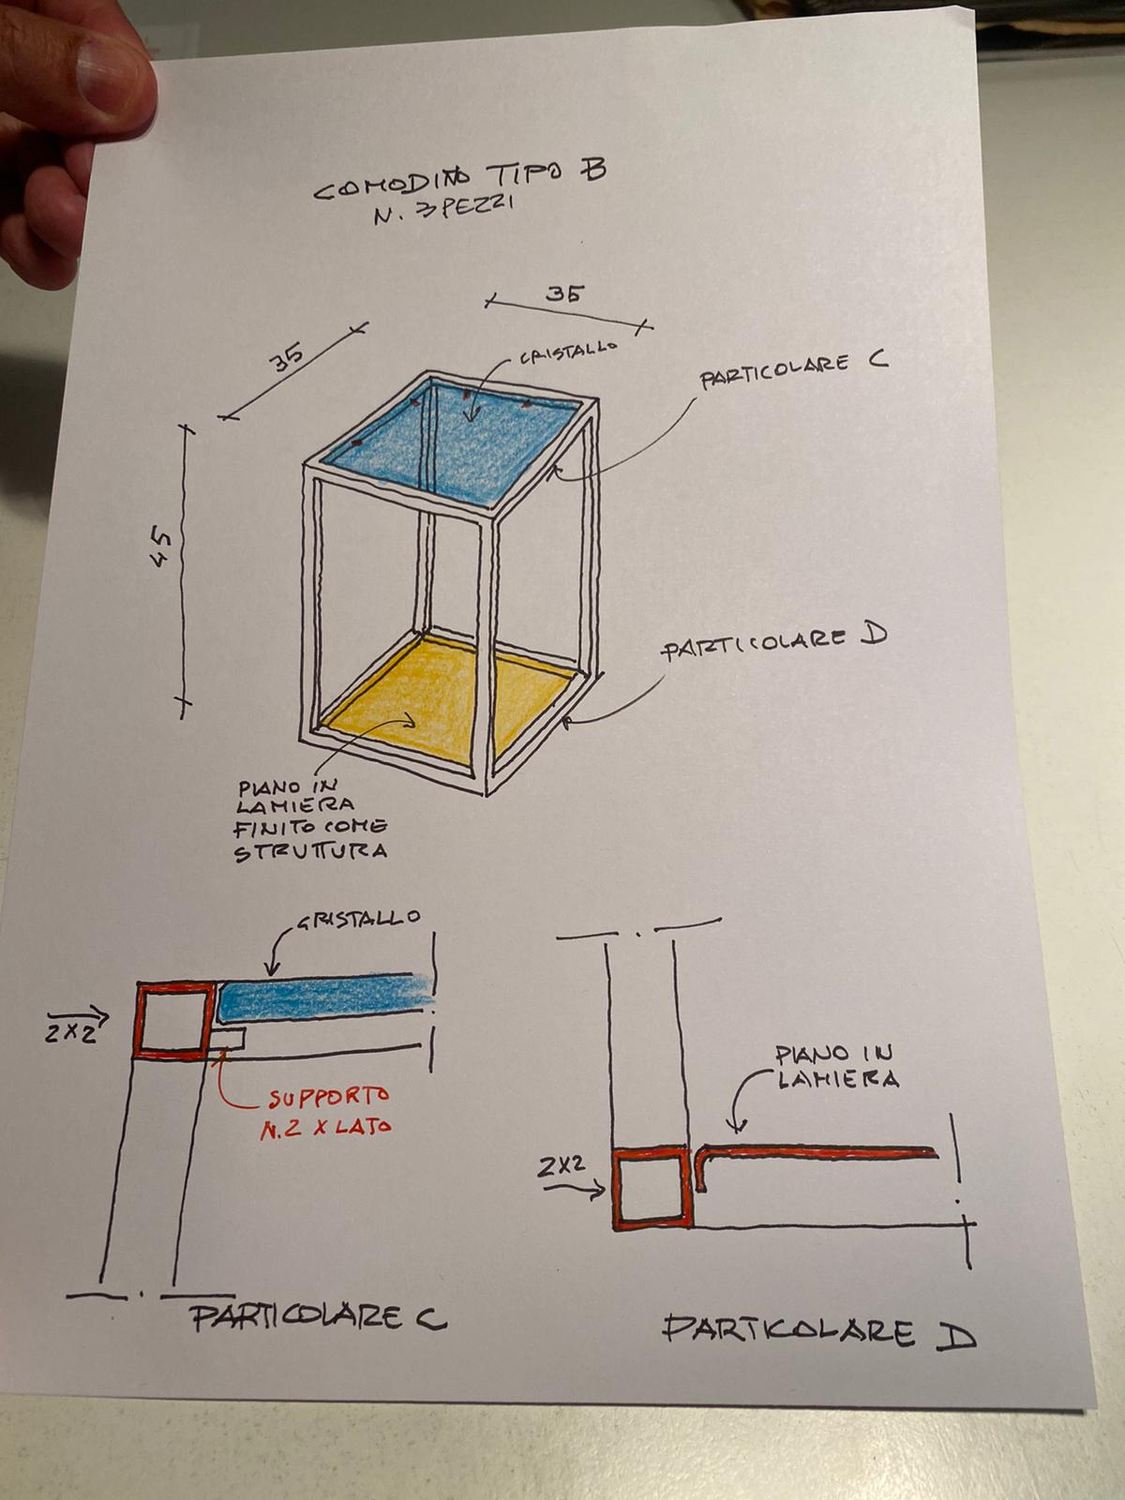 COMODINO TIPO B
N. 3 PEZZI
35
35
CRISTALLO
PARTICOLARE C
45
PARTICOLARE D
PIANO IN
LAMIERA
FINITO COME
STRUTTURA
CRISTALLO
2X2
SUPPORTO
N.2 X LATO
PARTICOLARE C
PIANO IN
LAMIERA
2X2
PARTICOLARE D